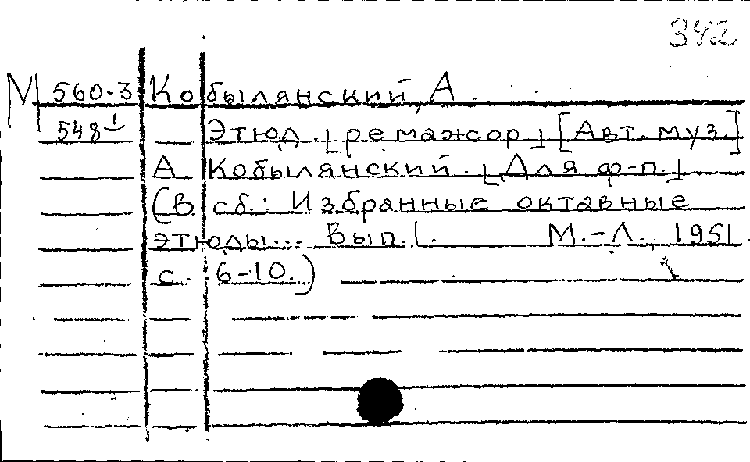 342
М 560-3 Кобылянский, А.
548¹ Этюд. [ре мажор] [Авт. муз.]
А. Кобылянский. [Для ф-п.]
(В сб.: Избранные октавные
этюды... Вып. 1. М.-Л., 1951.
с. 6-10.)